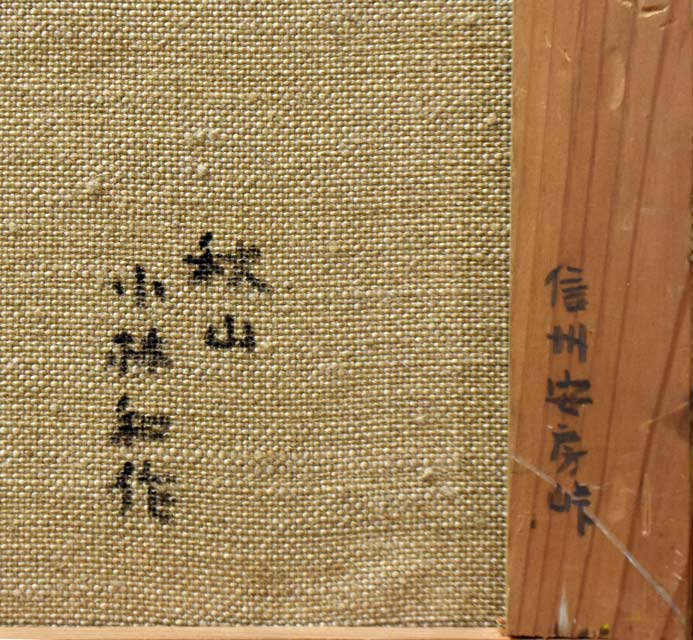 信州安房峠
秋山
小林和作